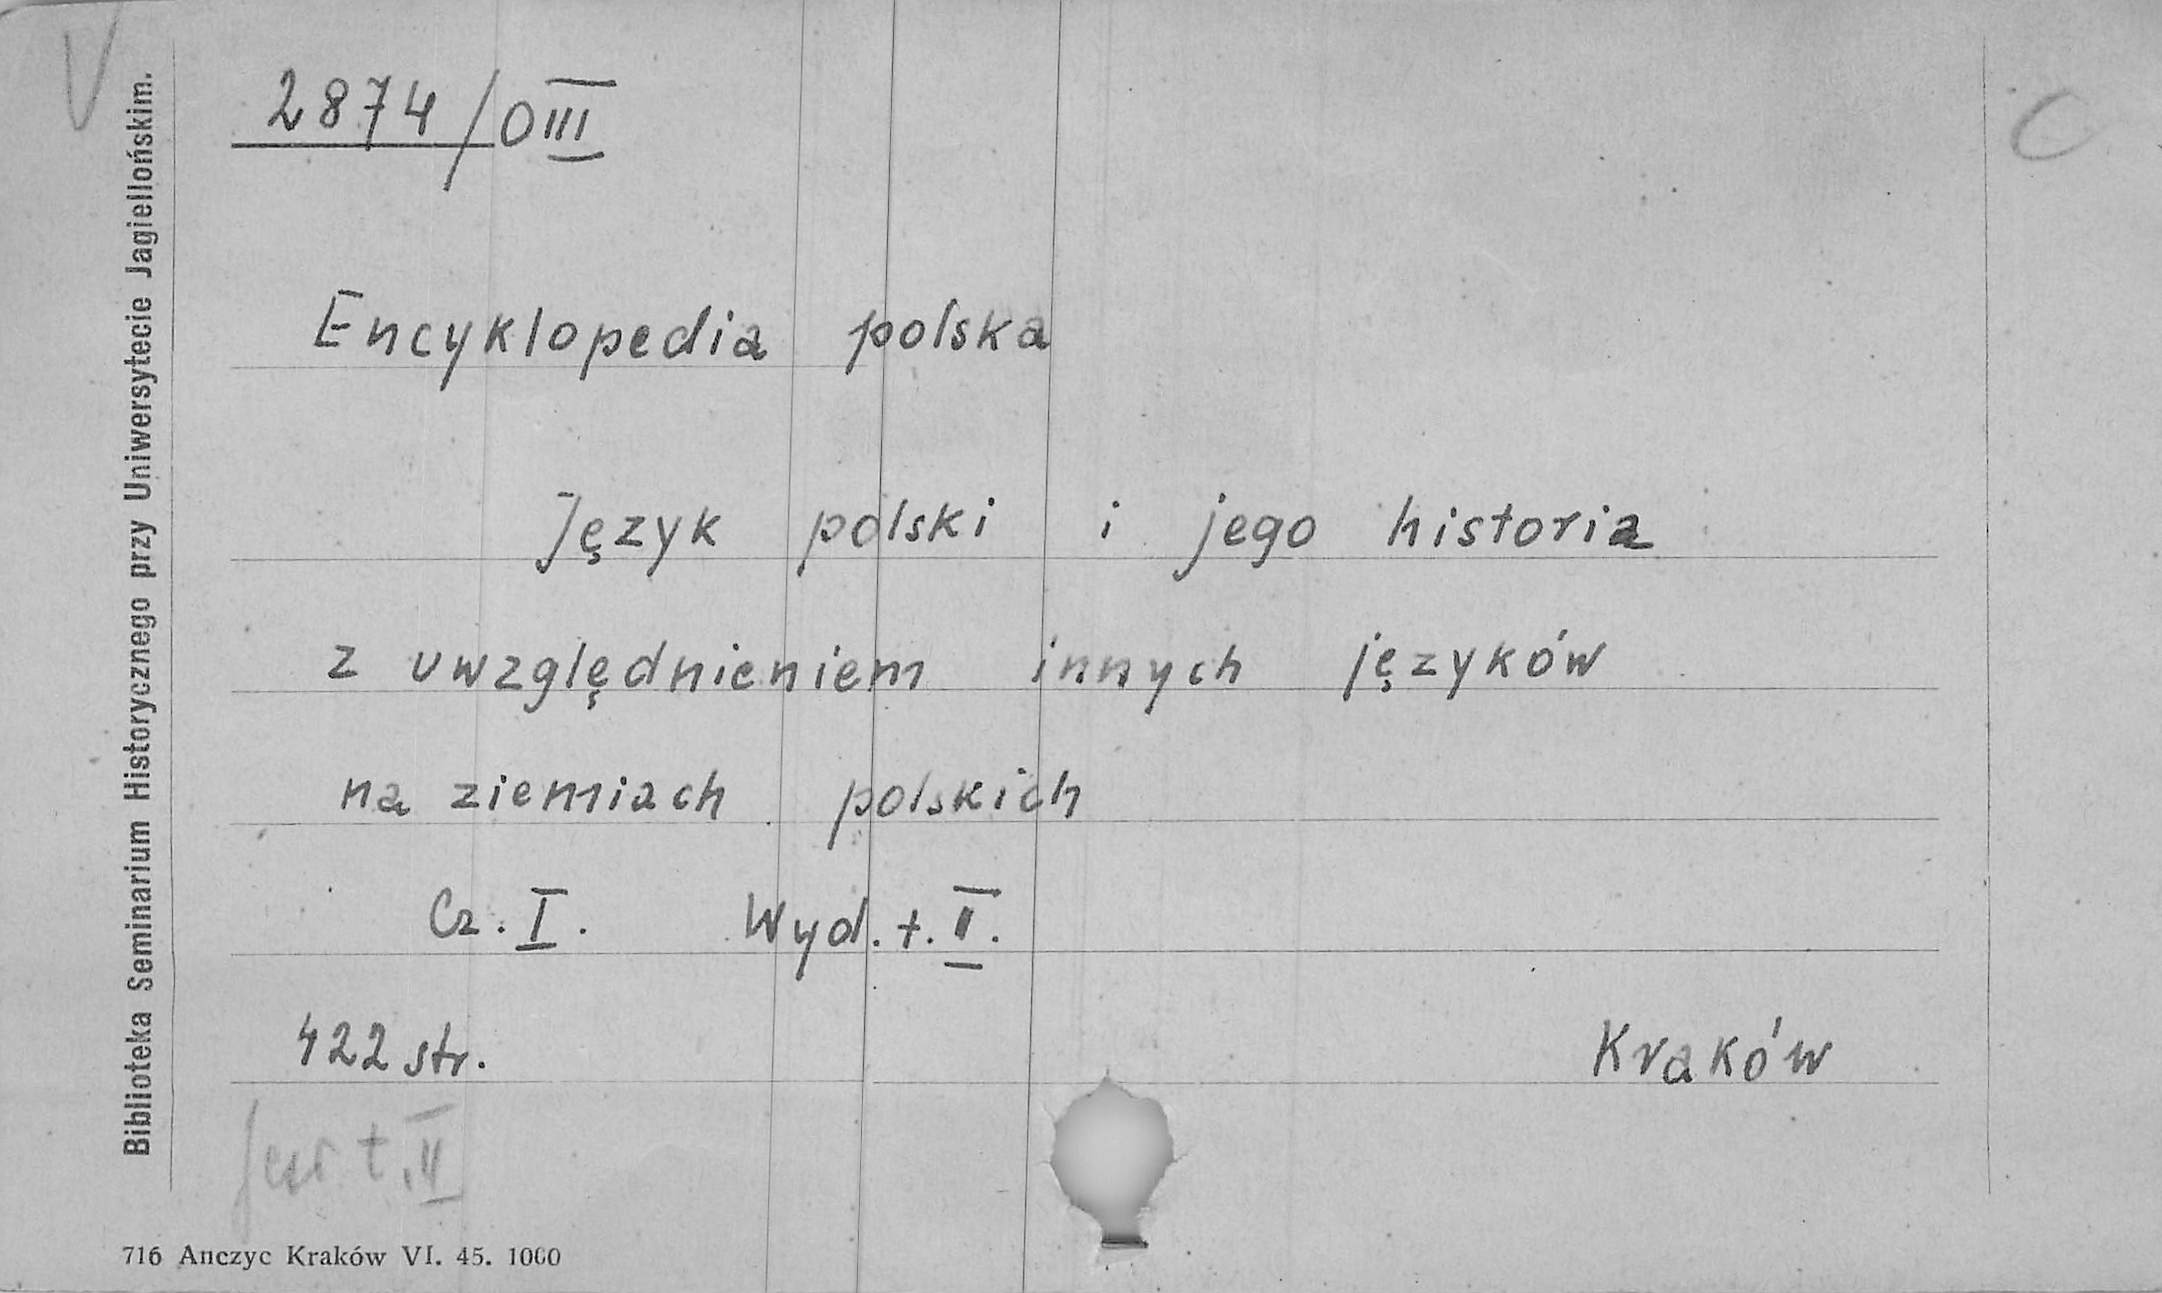 V
C
2874/O III
Encyklopedia polska
Język polski i jego historia
z uwzględnieniem innych języków
na ziemiach polskich
Cz. I. Wyd. t. II.
422 str. Kraków
Jest t. II
716 Anczyc Kraków VI. 45. 1000
Biblioteka Seminarium Historycznego przy Uniwersytecie Jagiellońskim.